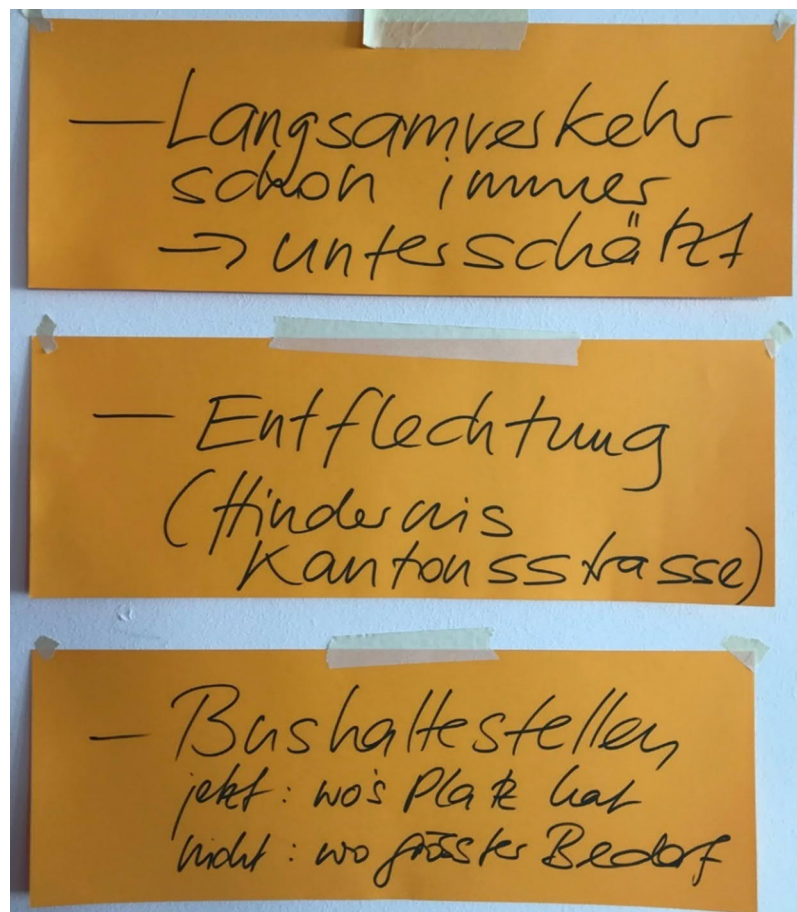 — Langsamverkehr
schon immer
→ unterschätzt
— Entflechtung
(Hindernis
Kantonsstrasse)
— Bushaltestellen
jetzt: wo's Platz hat
nicht: wo grösster Bedarf